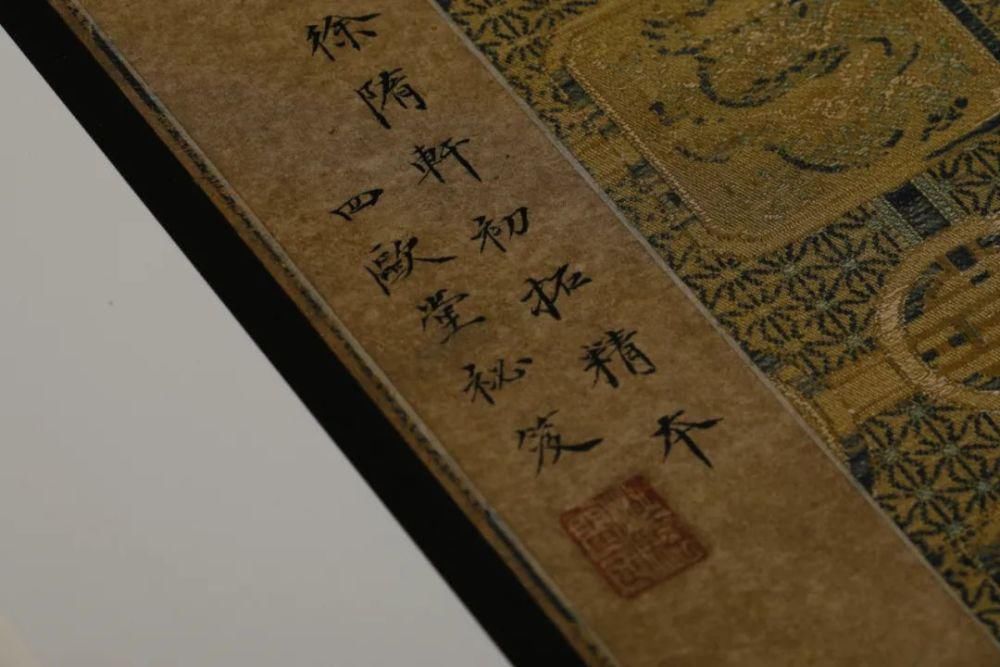 徐隋軒初拓精本
四歐堂祕笈